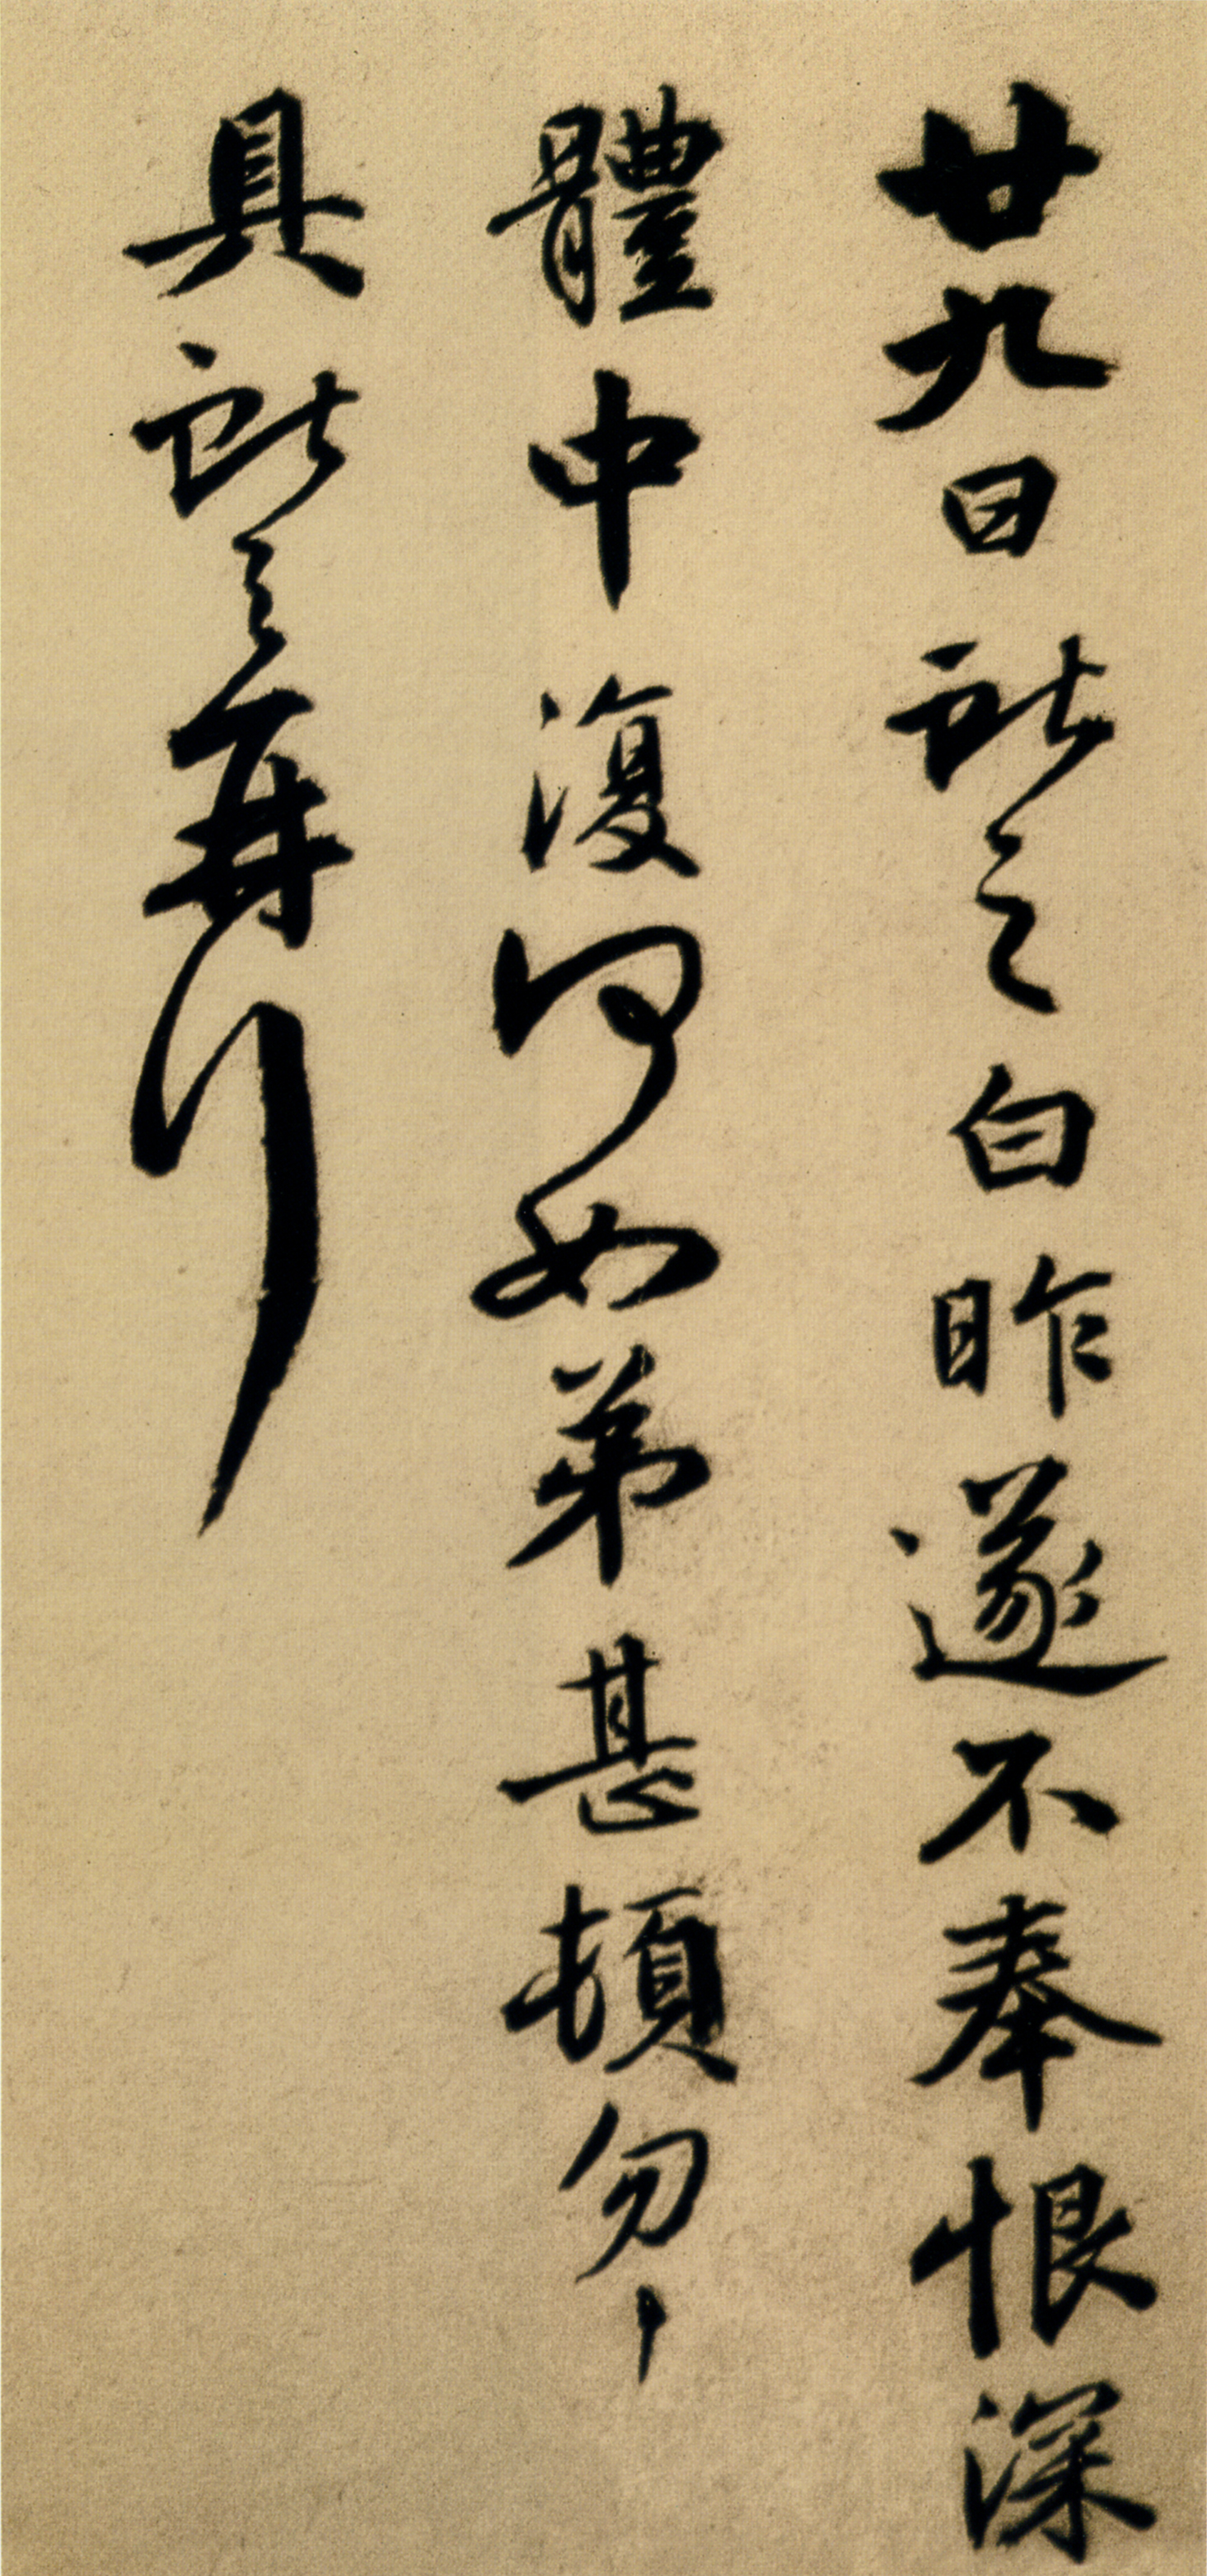 廿九日獻之白昨遂不奉恨深
體中復何如弟甚頓匆匆不
具獻之再拜